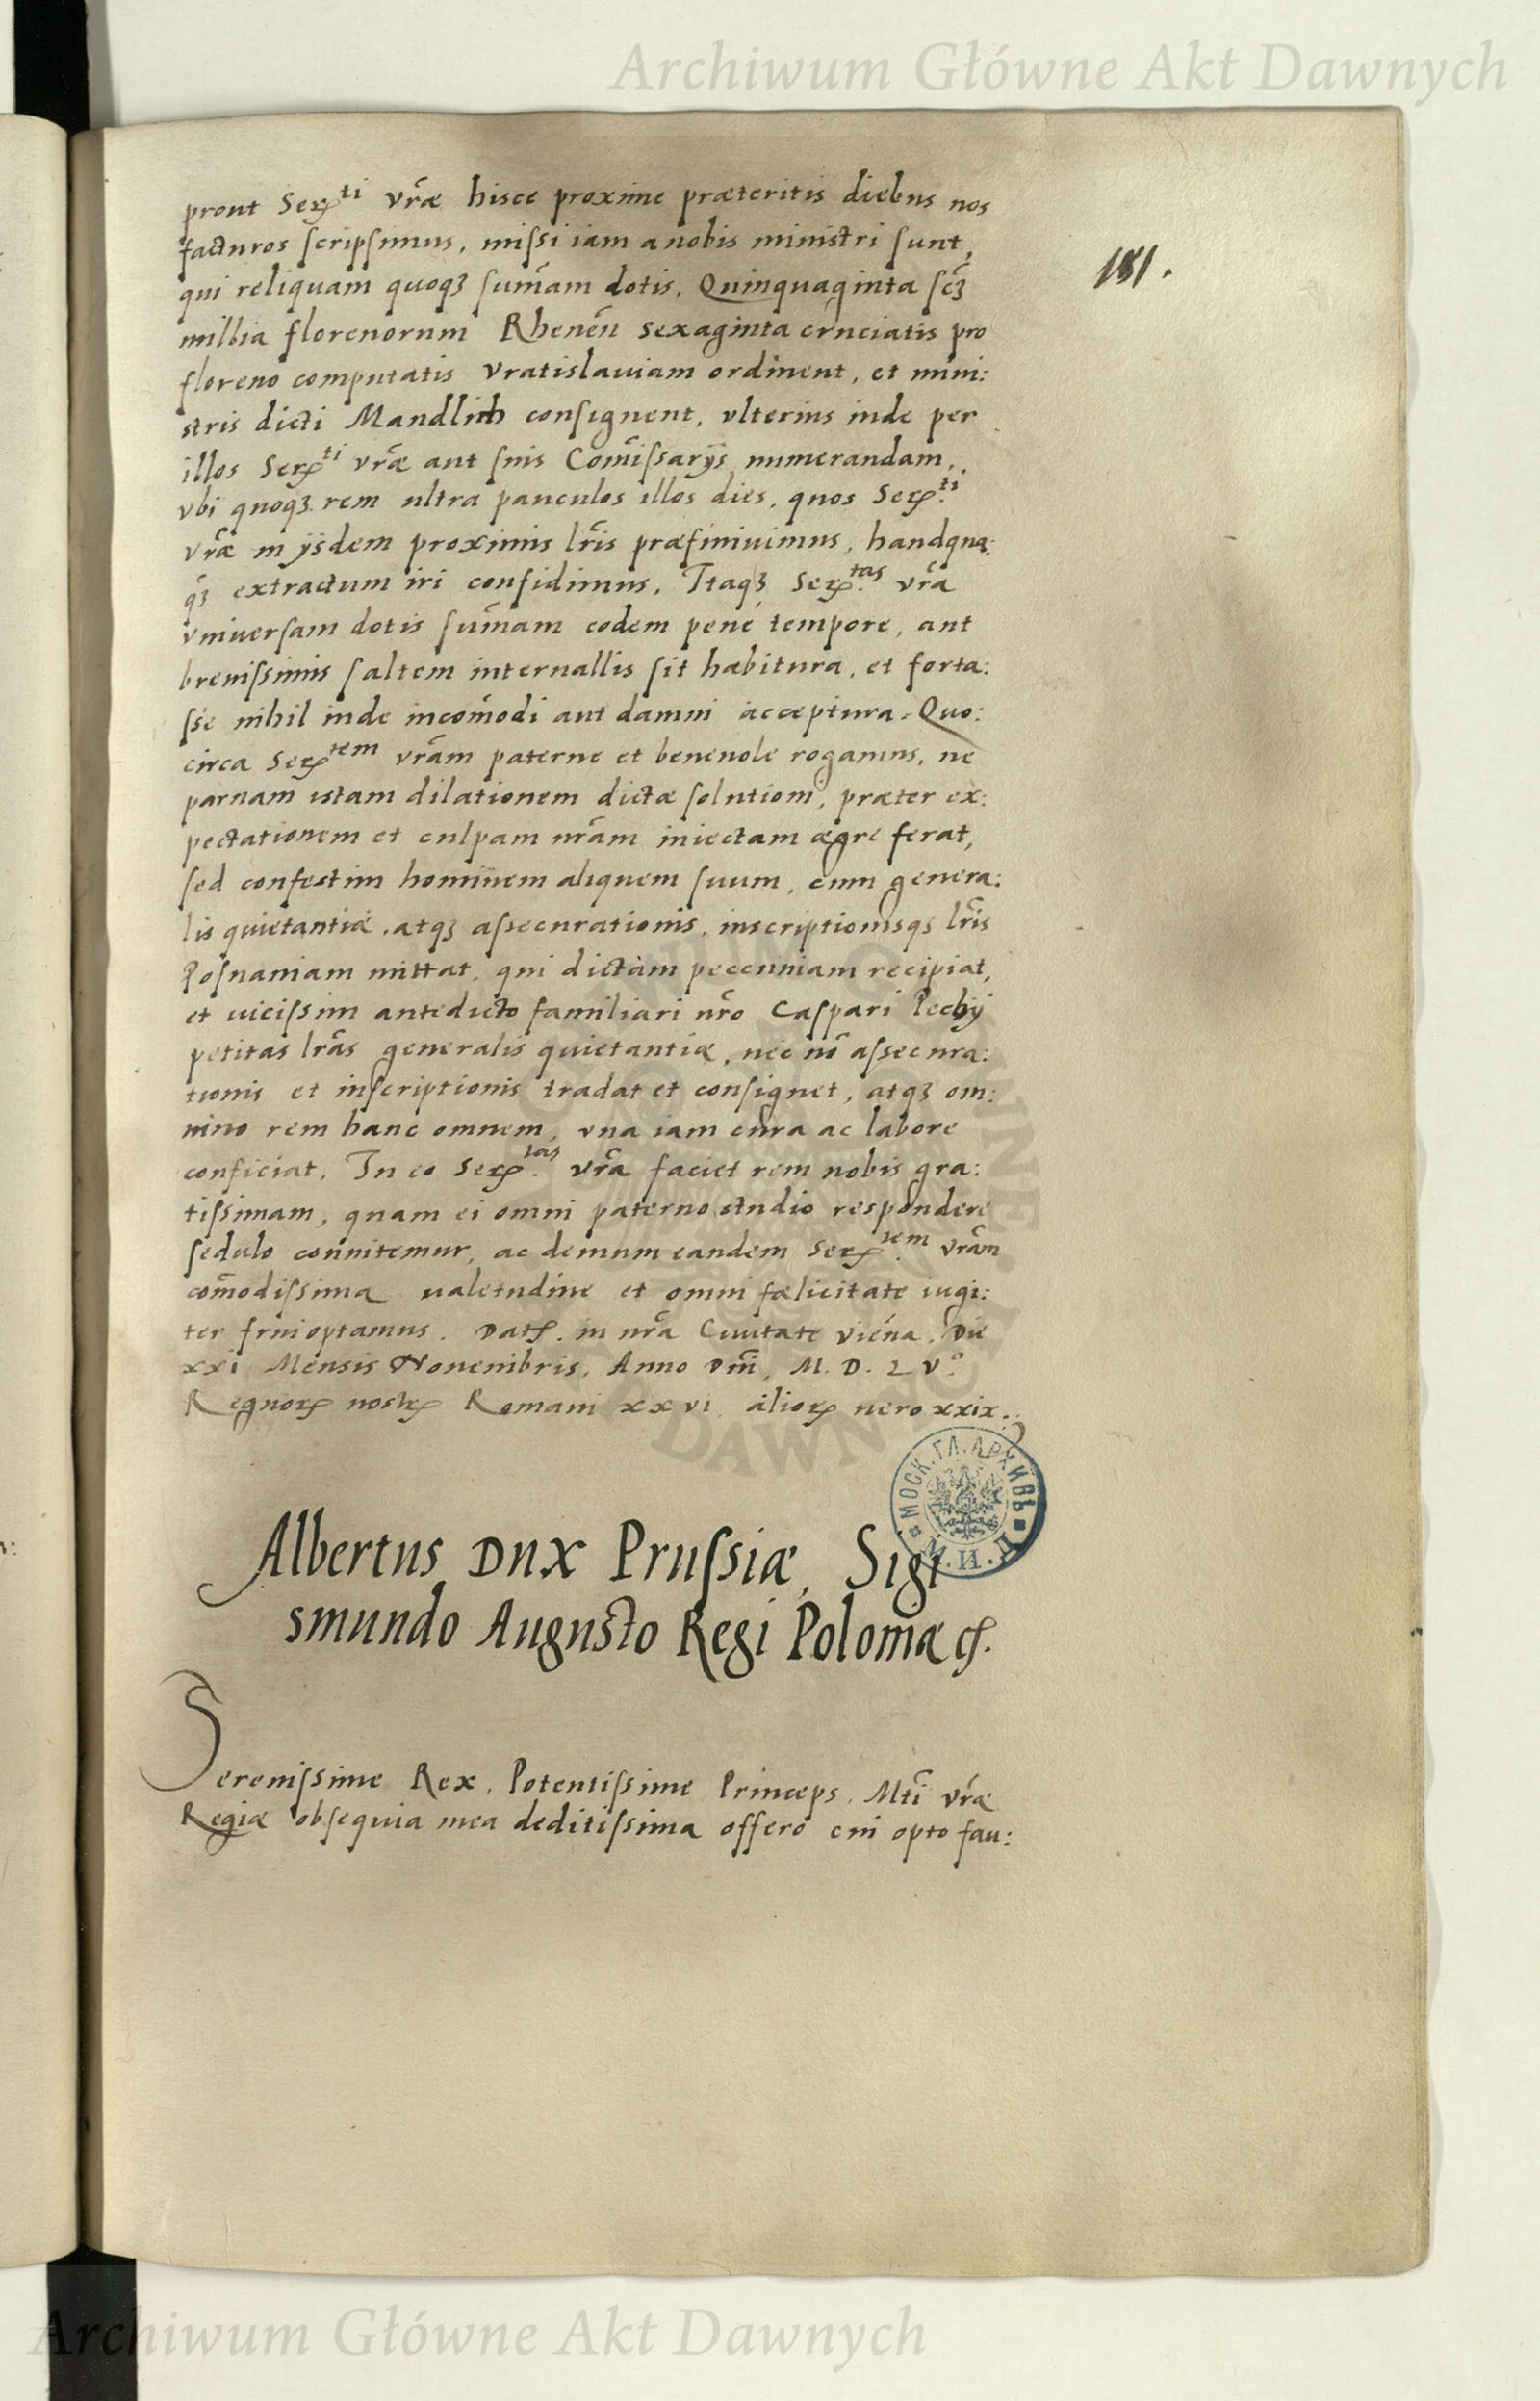 Archiwum Główne Akt Dawnych
181.
prout Serꝫᵗⁱ vr̃æ hisce proxime præteritis diebus nos
facturos scripsimus, missi iam a nobis ministri sunt,
qui reliquam quoqꝫ sum̃am dotis, Quinquaginta scꝫ̃
millia florenorum Rhenẽn sexaginta cruciatis pro
floreno computatis Vratislauiam ordinent, et mini:
stris dicti Mandlich consignent, vlterius inde per
illos Serꝫᵗⁱ vr̃æ aut suis Com̃issarijs numerandam,
vbi quoqꝫ rem ultra pauculos illos dies, quos Serꝫᵗⁱ
vr̃æ in ijsdem proximis lr̃is præfiniuimus, haudqua:
qꝫ extractum iri confidimus. Itaqꝫ Serꝫᵗᵃˢ vr̃a
vniuersam dotis sum̃am eodem pene tempore, aut
breuissimis saltem interuallis sit habitura, et forta:
sse nihil inde incom̃odi aut damni acceptura. Quo:
circa Serꝫᵗᵉᵐ vr̃am paterne et beneuole rogamus, ne
paruam istam dilationem dictæ solutiom, præter ex:
pectationem et culpam nr̃am iniectam ægre ferat,
sed confestim hominem aliquem suum, cum genera:
lis quietantiæ, atqꝫ assecurationis, inscriptionisqꝫ lr̃is
Posnaniam mittat, qui dictam peccuniam recipiat,
et uicissim antedicto familiari nr̃o Caspari Pechij
petitas lr̃as generalis quietantiæ, nec nõ assecura:
tionis et inscriptionis tradat et consignet, atqꝫ om:
nino rem hanc omnem, vna iam cura ac labore
conficiat. In eo Serꝫᵗᵃˢ vr̃a faciet rem nobis gra:
tissimam, quam ei omni paterno studio respondere
sedulo connitemur, ac demum eandem Serꝫᵗᵉᵐ vr̃am
com̃odissima ualetudine et omni fælicitate iugi:
ter frui optamus. Datꝭ. in nr̃a Ciuitate Vieña. Die
xxi Mensis Nouembris, Anno Dñi, M. D. L V°.
Regnorꝫ nostrꝫ Romani xxvi, aliorꝫ uero xxix.
МОСК. ГЛ. АРХИВЪ
Albertus Dux Prussiæ, Sigi
smundo Augusto Regi Poloniæ ꝭ.
Serenissime Rex, Potentissime Princeps, Mtĩ vr̃æ
Regiæ obsequia mea deditissima offero cui opto fau:
Archiwum Główne Akt Dawnych